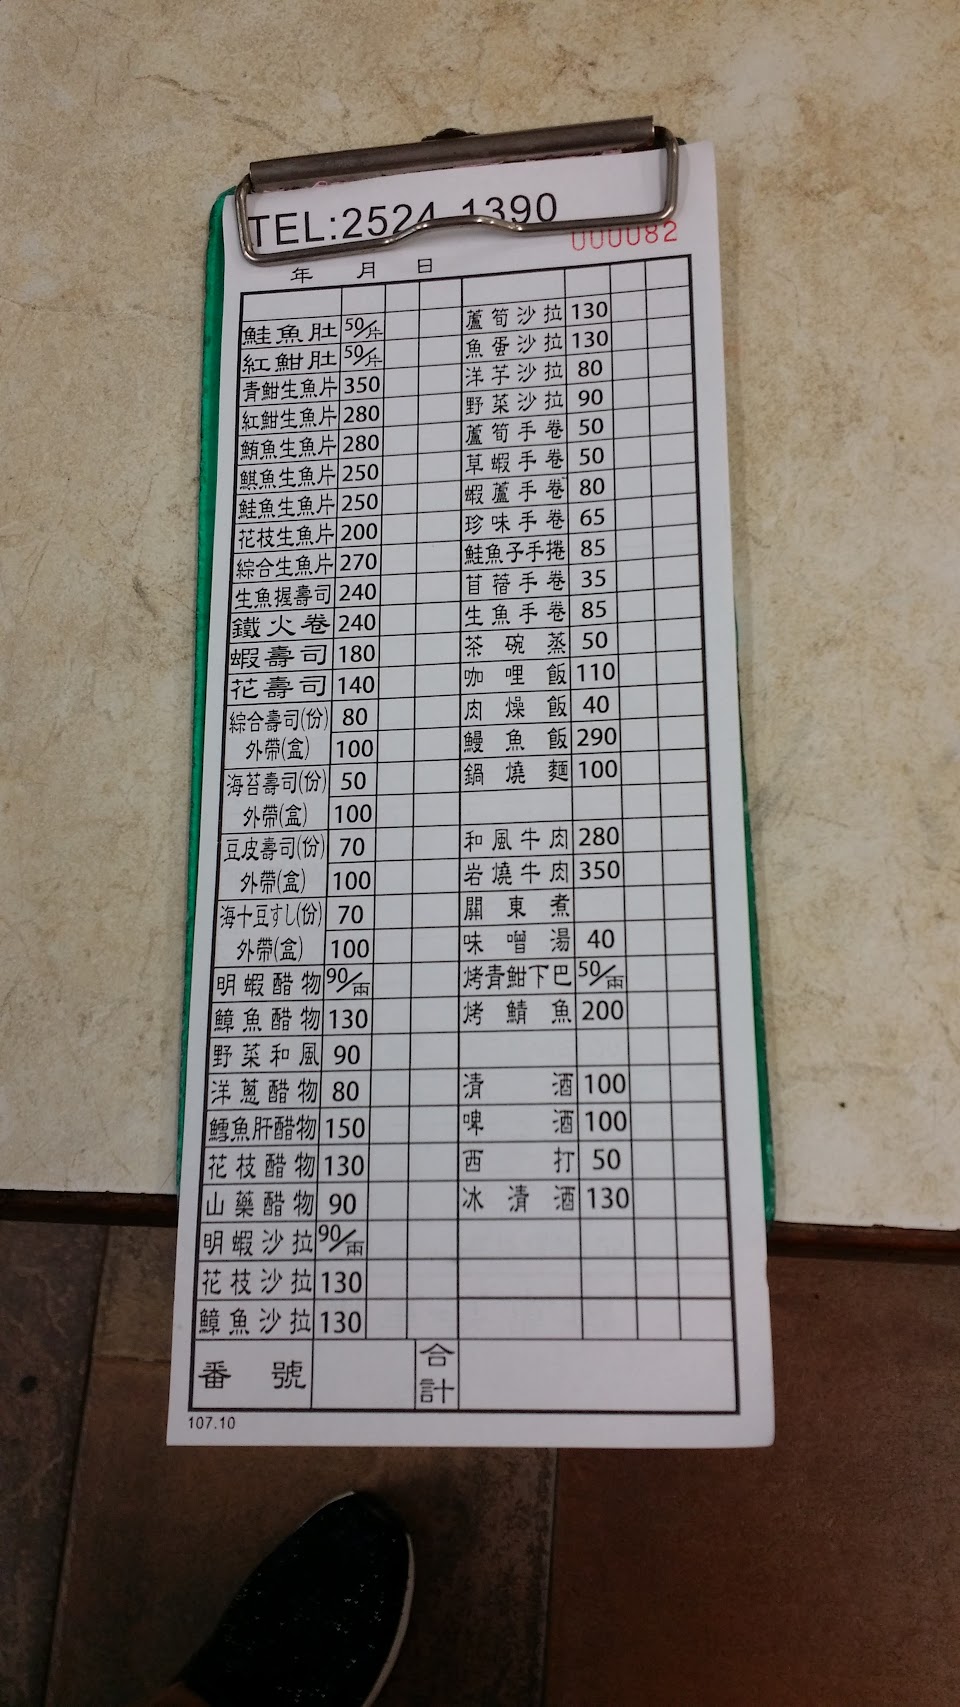 TEL:2524-1390
000082
年 月 日
鮭魚肚 50/片
紅魽肚 50/片
青魽生魚片 350
紅魽生魚片 280
鮪魚生魚片 280
鯕魚生魚片 250
鮭魚生魚片 250
花枝生魚片 200
綜合生魚片 270
生魚握壽司 240
鐵火卷 240
蝦壽司 180
花壽司 140
綜合壽司(份) 80
外帶(盒) 100
海苔壽司(份) 50
外帶(盒) 100
豆皮壽司(份) 70
外帶(盒) 100
海十豆すし(份) 70
外帶(盒) 100
明蝦醋物 90/兩
鱆魚醋物 130
野菜和風 90
洋蔥醋物 80
鱈魚肝醋物 150
花枝醋物 130
山藥醋物 90
明蝦沙拉 90/兩
花枝沙拉 130
鱆魚沙拉 130
蘆筍沙拉 130
魚蛋沙拉 130
洋芋沙拉 80
野菜沙拉 90
蘆筍手卷 50
草蝦手卷 50
蝦蘆手卷 80
珍味手卷 65
鮭魚子手捲 85
苜蓿手卷 35
生魚手卷 85
茶碗蒸 50
咖哩飯 110
肉燥飯 40
鰻魚飯 290
鍋燒麵 100
和風牛肉 280
岩燒牛肉 350
關東煮
味噌湯 40
烤青魽下巴 50/兩
烤鯖魚 200
清酒 100
啤酒 100
西打 50
冰清酒 130
番號
合計
107.10